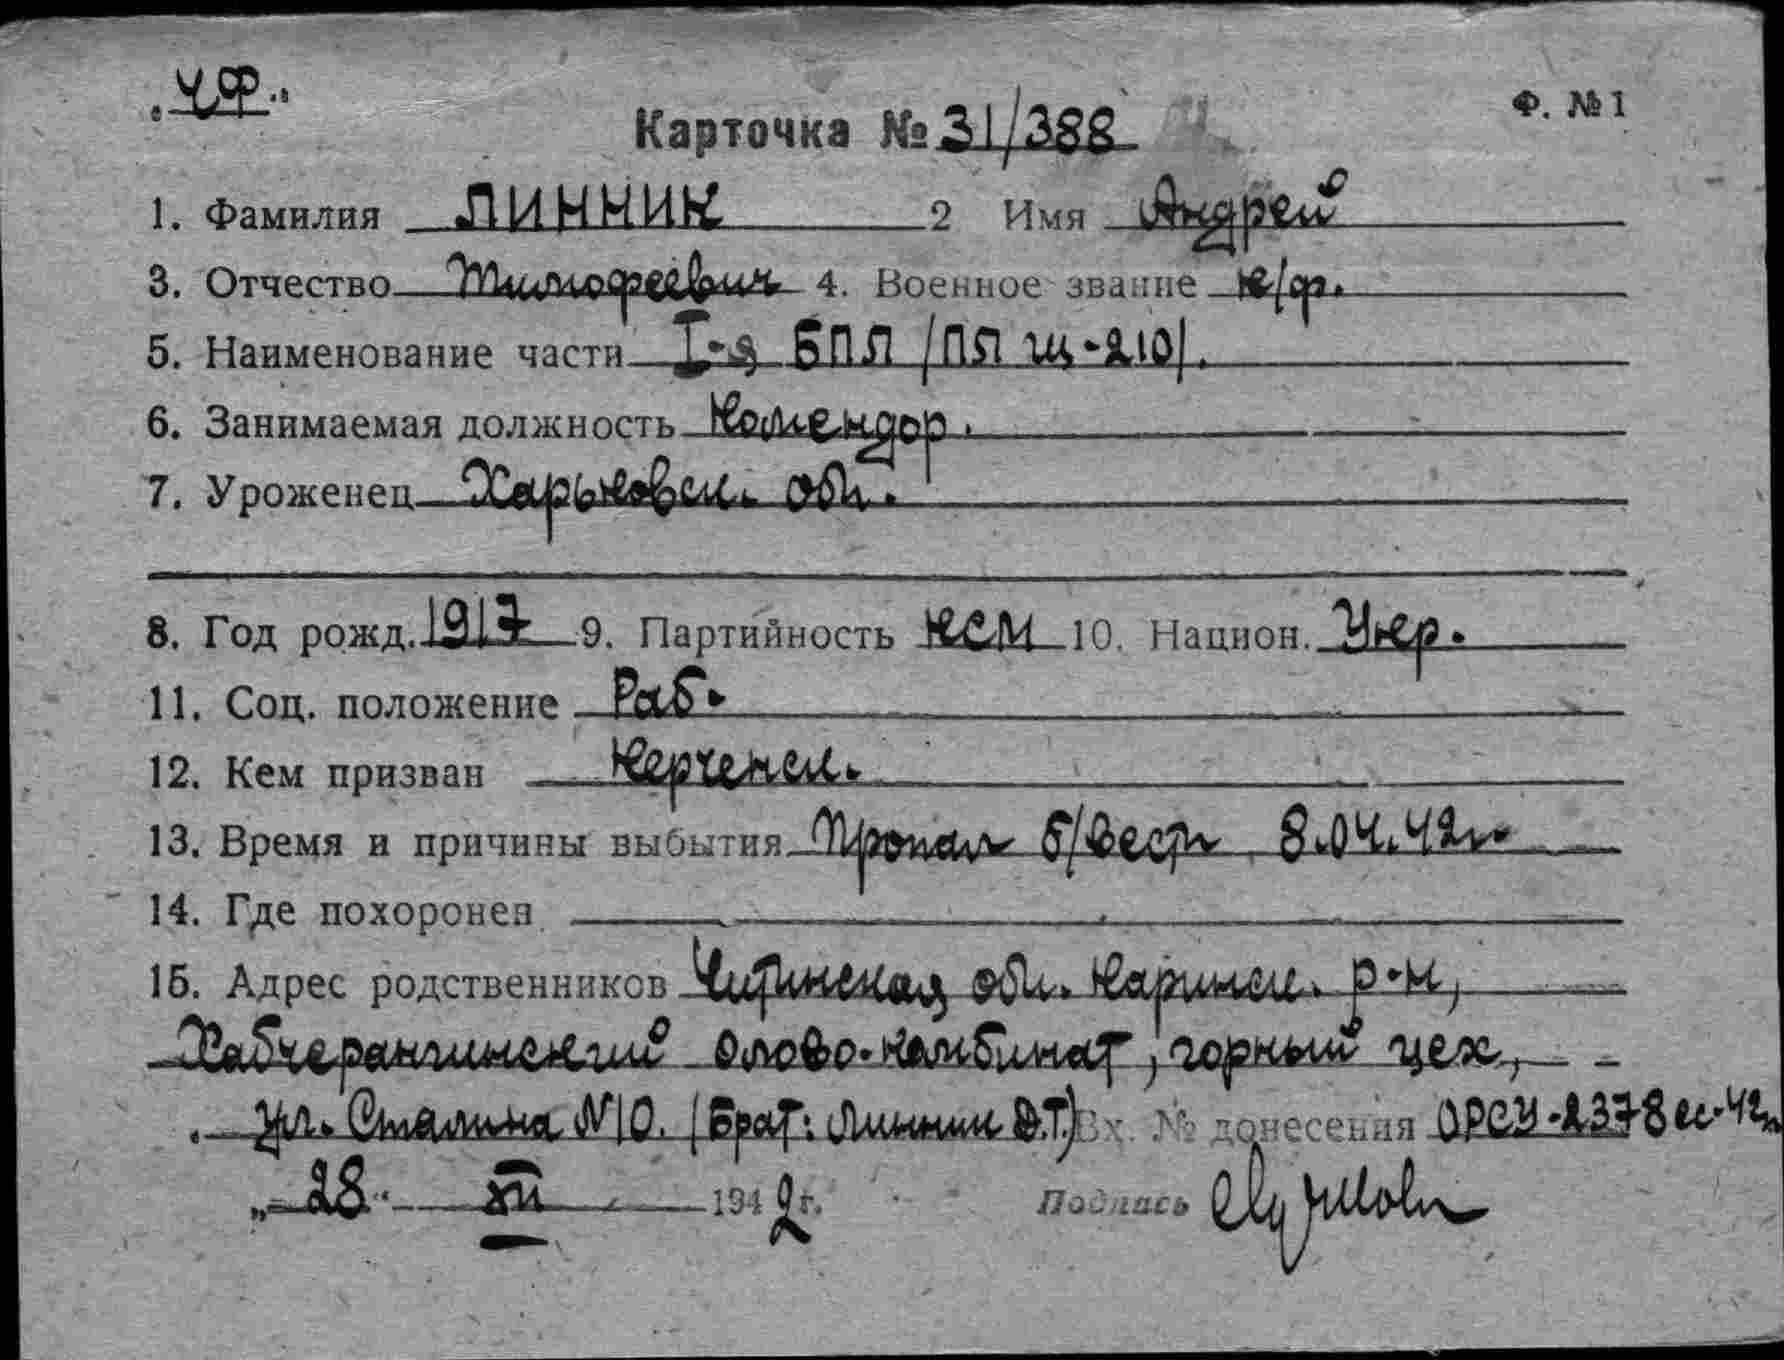 „ЧФ"
Ф. №1
Карточка № 31/388
1. Фамилия ЛИННИК 2 Имя Андрей
3. Отчество Тимофеевич 4. Военное звание к/ф.
5. Наименование части I-я БПЛ /ПЛ Щ-210/.
6. Занимаемая должность Комендор.
7. Уроженец Харьковск. обл.
8. Год рожд. 1917 9. Партийность КСМ 10. Национ. Укр.
11. Соц. положение Раб.
12. Кем призван Керченск.
13. Время и причины выбытия Пропал б/вести 8.04.42г.
14. Где похоронен
15. Адрес родственников Читинская обл. Каринск. р-н,
Хабчерангинский олово-комбинат, горный цех,
ул. Сталина N10. (Брат: Линник Д.Т.) Вх. № донесения ОРСУ-2378сс-42г
„28" XII 1942г. Подпись